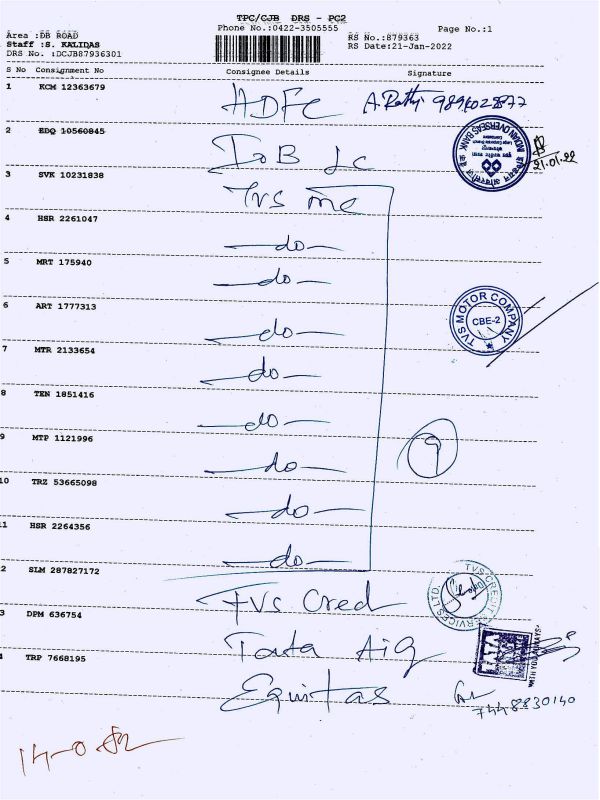 TPC/CJB DRS - PC2
Phone No.:0422-3505555
Page No.:1
Area :DB ROAD
RS No.:879363
Staff :S. KALIDAS
RS Date:21-Jan-2022
DRS No. :DCJB87936301
S No Consignment No Consignee Details Signature
1 KCM 12363679 HDFC
2 EDQ 10560845 IOB LC
INDIAN OVERSEAS BANK
21.01.22
3 SVK 10231838 TVS mc
4 HSR 2261047 do
5 MRT 175940 do
6 ART 1777313 do
TVS MOTOR COMPANY
CBE-2
7 MTR 2133654 do
8 TEN 1851416 do
9 MTP 1121996 do
9
10 TRZ 53665098 do
11 HSR 2264356 do
2 SLM 287827172 TVS Cred
TVS CREDIT SERVICES LTD.
3 DPM 636754 Tata Aig
WITH YOU ALWAYS
4 TRP 7668195 Equitas
7448830140